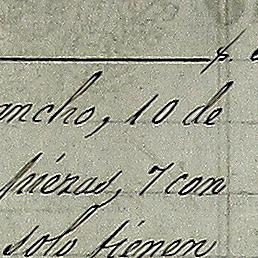 ancho, 10 de
piézas, 7 con
solo tiénen